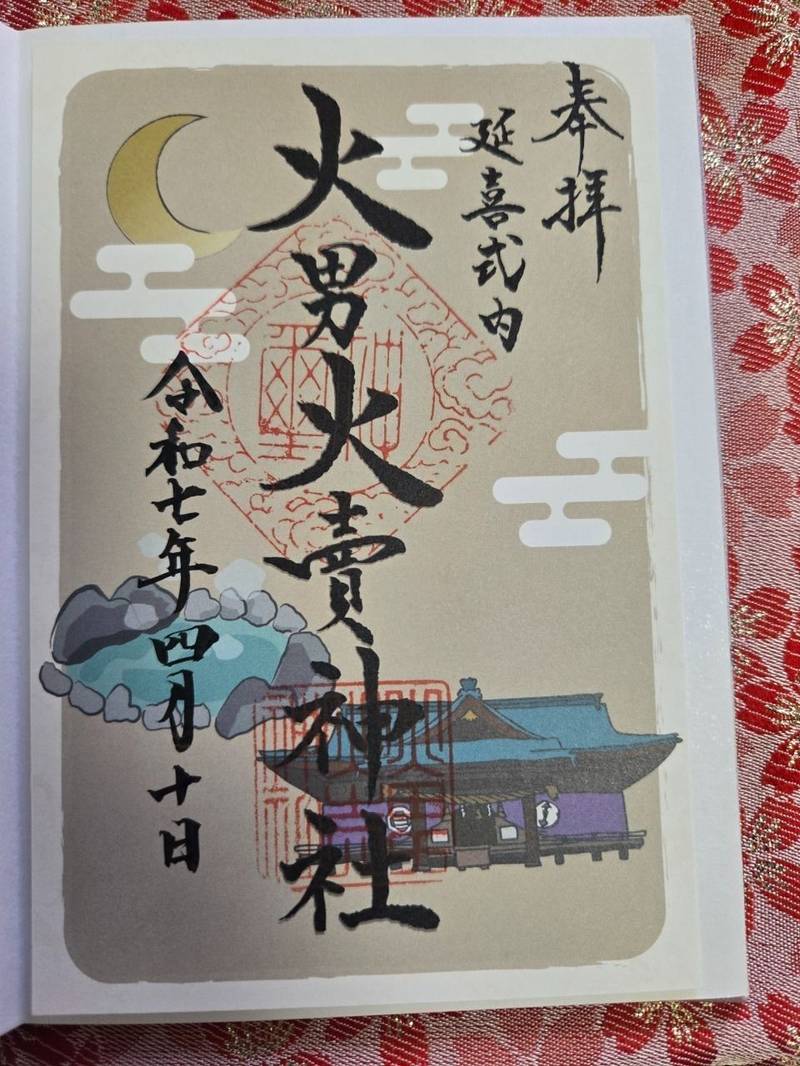 奉拝
延喜式内
火男火賣神社
令和七年四月十日